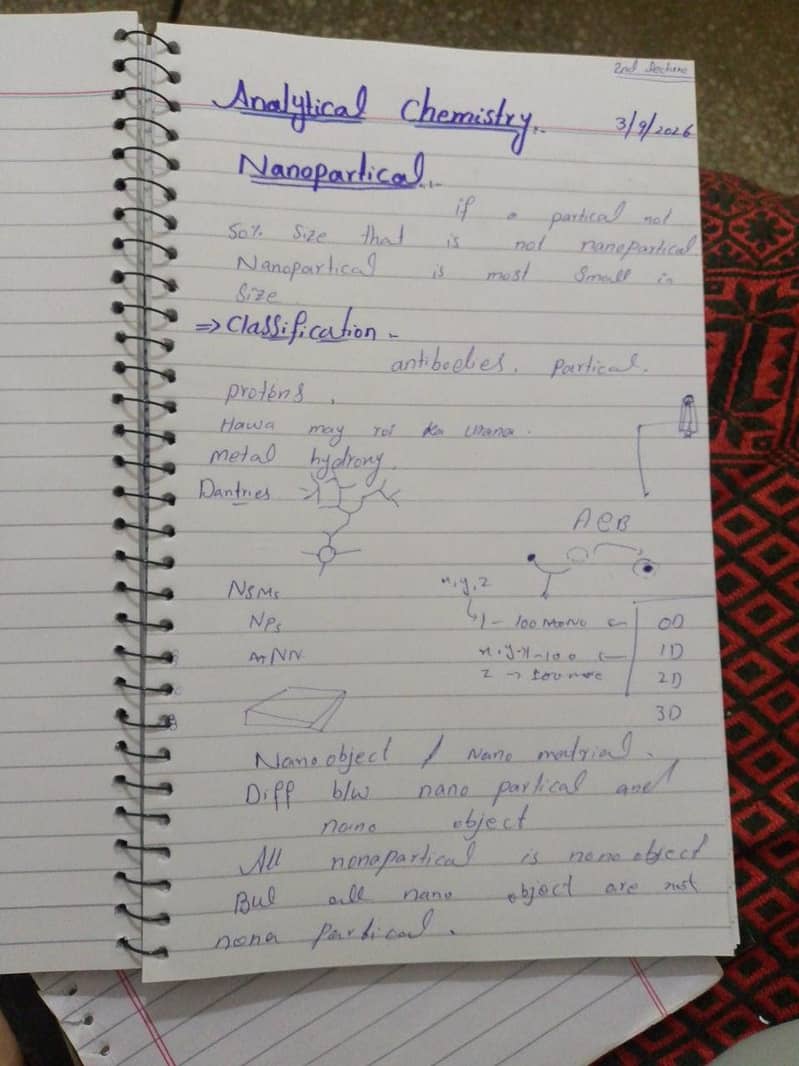 2nd Lecture
Analytical Chemistry.
3/9/2026
Nanopartical.
if a partical not
50% Size that is not nanopartical.
Nanopartical is most Small in
Size
=> Classification -
antibodies. Partical.
proténs.
Hawa may roi ka urana.
metal hydrony.
Dantries
AeB
NSMs
x,y,z
NPs
1-100 0D
1D
z → 2D
3D
Nano object / Nano matrial.
Diff b/w nano partical and
nano object
All nonopartical is nono object
But all nano object are not
nona Partical.